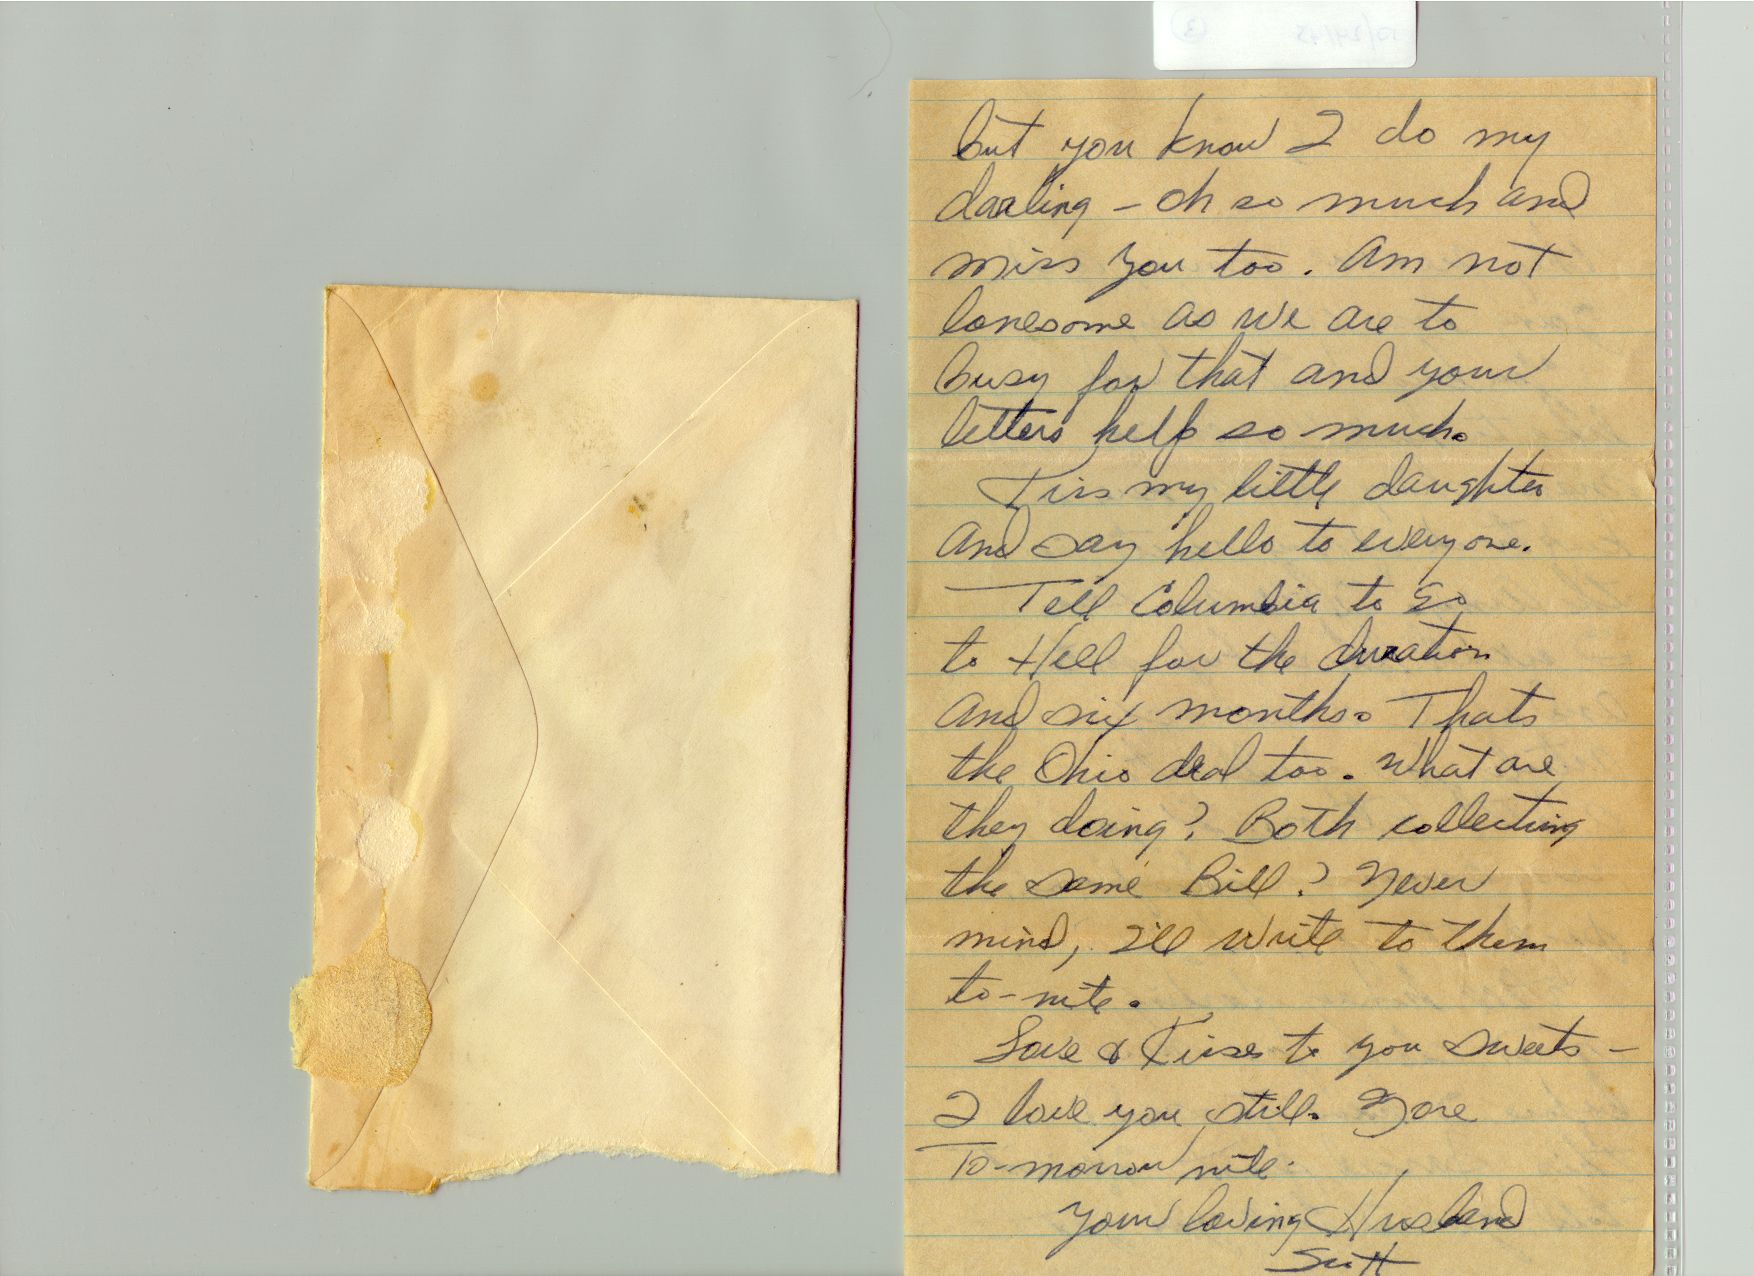 but you know I do my
darling – oh so much and
miss you too. Am not
lonesome as we are to
busy for that and your
letters help so much.
Kiss my little daughter
and say hello to everyone.
Tell Columbia to go
to Hell for the duration
and six months. Thats
the Ohio deal too. What are
they doing? Both collecting
the same Bill? Never
mind, I'll write to them
to-nite.
Love & Kisses to you sweets –
I love you still. More
To-morrow nite.
Your loving Husband
Scott